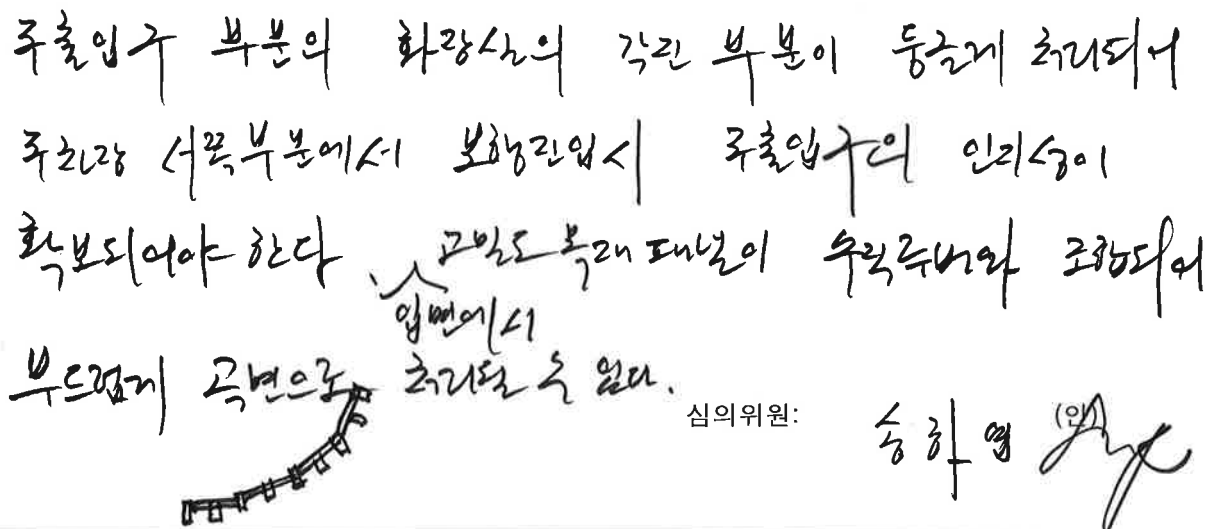 주출입구 부분의 화장실의 각진 부분이 둥글게 처리되어
주차장 서쪽부분에서 보행진입시 주출입구의 인지성이
확보되어야 한다. 입면에서 고밀도 목재 패널이 수직루버와 조합되어
부드럽게 곡면으로 처리될 수 있다.
심의위원: 송하엽 (인)